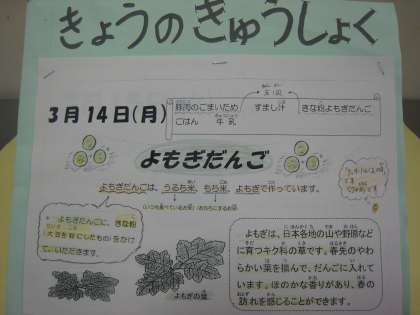 きょうのきゅうしょく
3月14日(月)
豚肉のごまいため すまし汁 きな粉よもぎだんご
ごはん 牛乳
よもぎだんご
よもぎだんごは、うるち米、もち米、よもぎで作っています。
よもぎだんごに、きな粉
(大豆を粉にしたもの)をかけ
ていただきます。
よもぎの葉
よもぎは、日本各地の山や野原など
に育つキク科の草です。春先のやわ
らかい葉を摘んで、だんごに入れて
います。ほのかな香りがあり、春の
訪れを感じることができます。